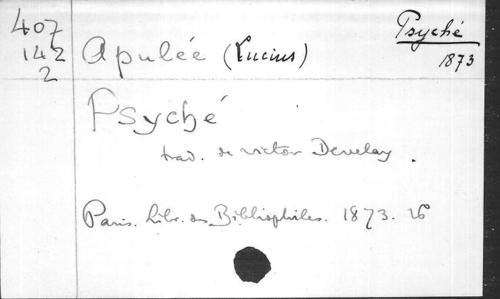 407
142
2
Apulée (Lucius)
Psyché
1873
Psyché
trad. de Victor Develay.
Paris. Libr. des Bibliophiles. 1873. 16